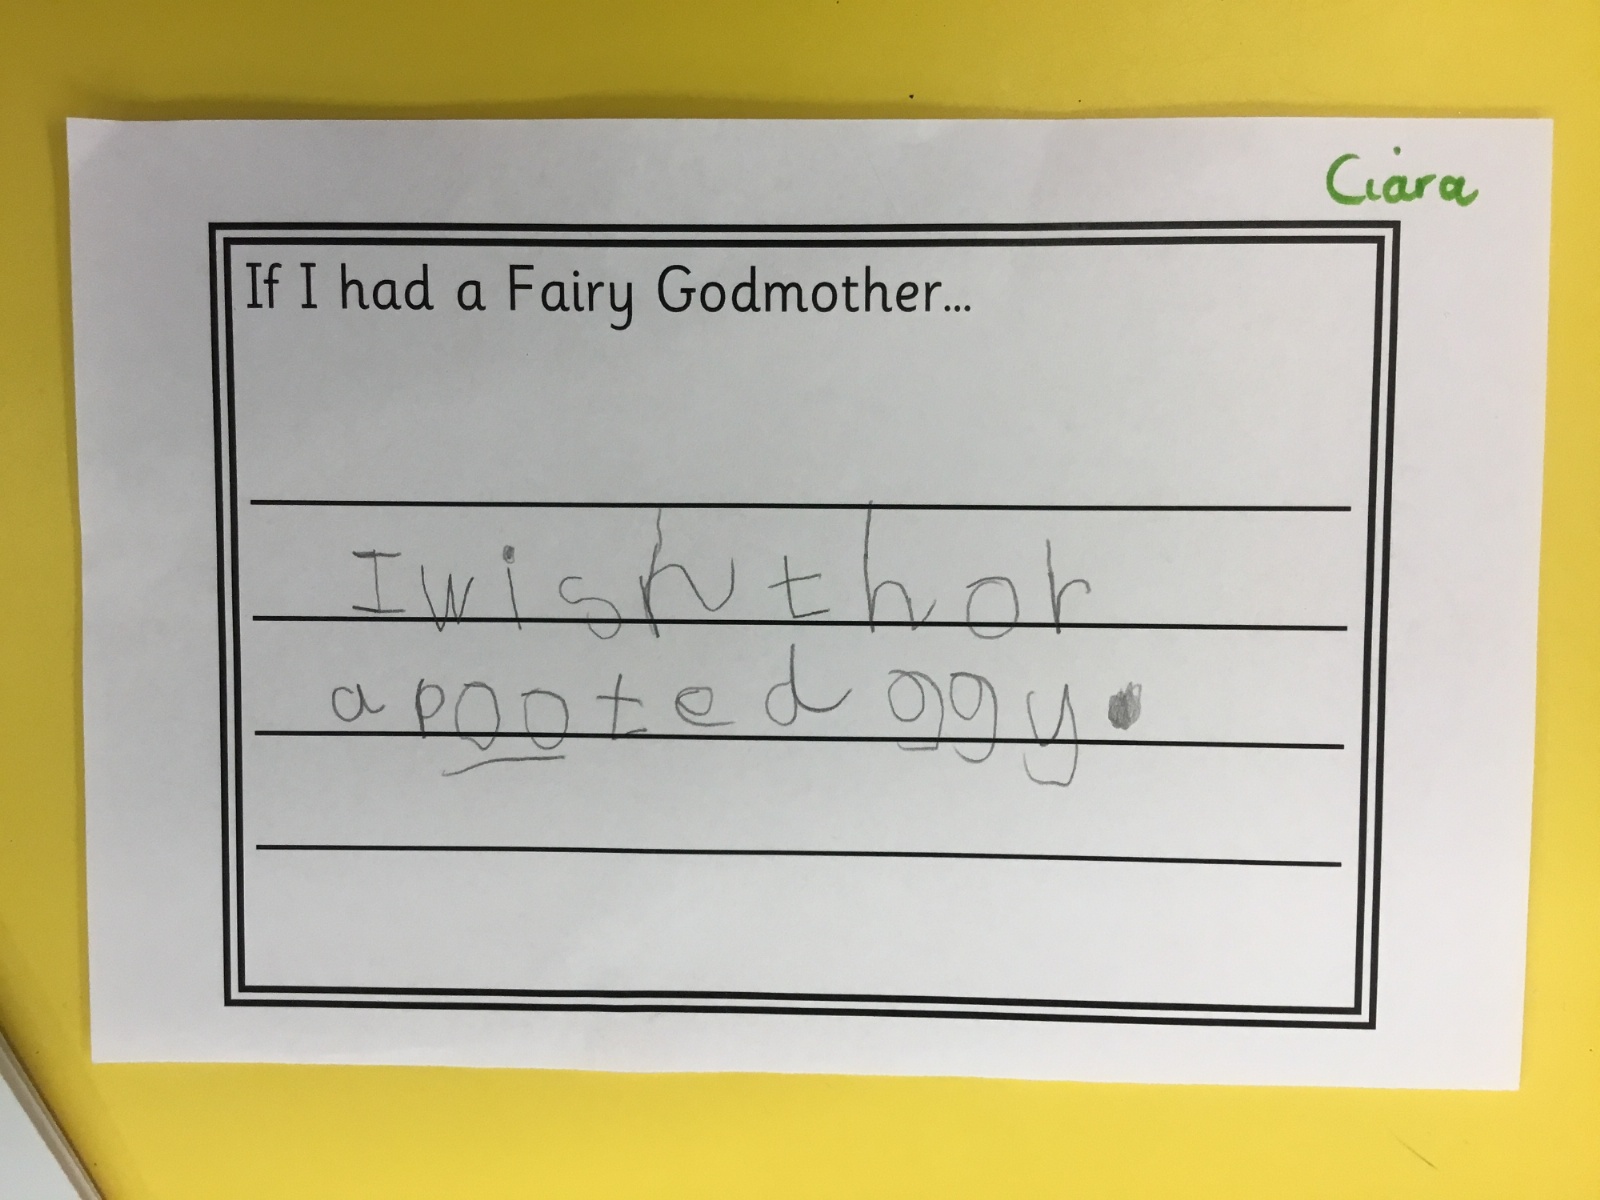 Ciara
If I had a Fairy Godmother...
I wish t h or
a pooted ggy.